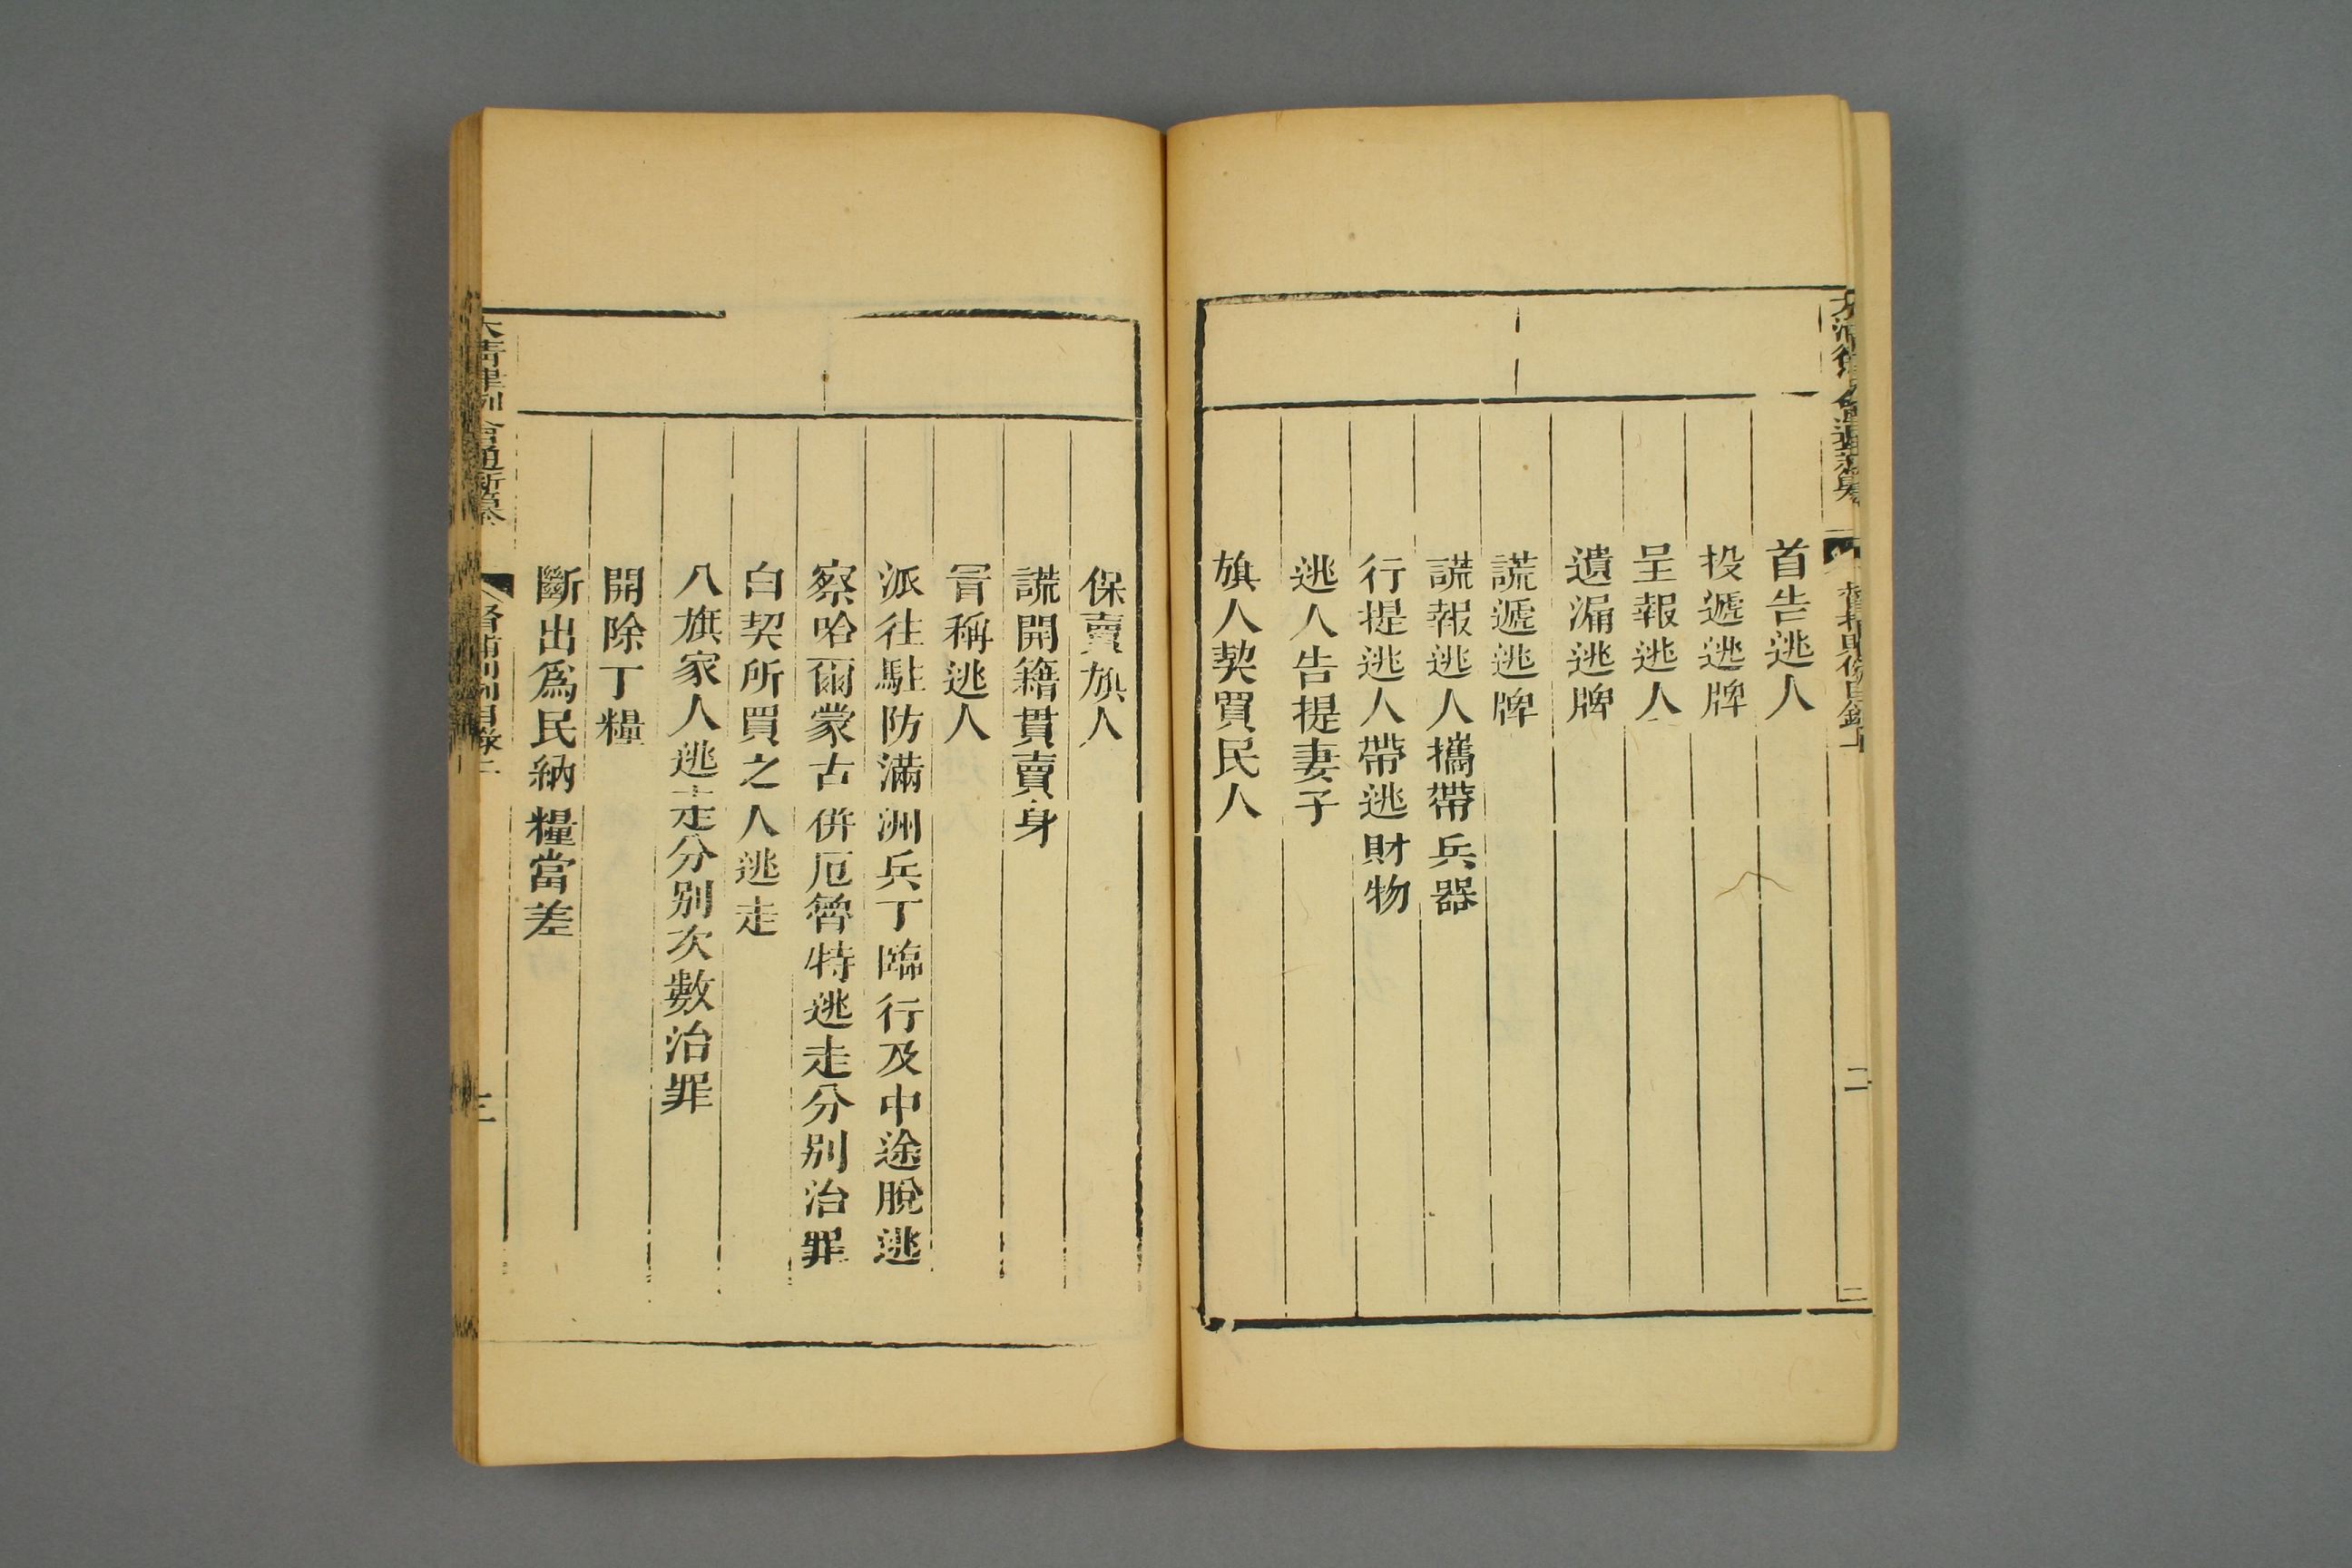 首告逃人
投遞逃牌
呈報逃人
遺漏逃牌
謊遞逃牌
謊報逃人攜帶兵器
行提逃人帶逃財物
逃人告提妻子
旗人契買民人
二
保賣旗人
謊開籍貫賣身
冒稱逃人
派往駐防滿洲兵丁臨行及中途脫逃
察哈爾蒙古併厄魯特逃走分别治罪
白契所買之人逃走
八旗家人逃走分别次數治罪
開除丁糧
斷出爲民納糧當差
大清律例會通新纂
三